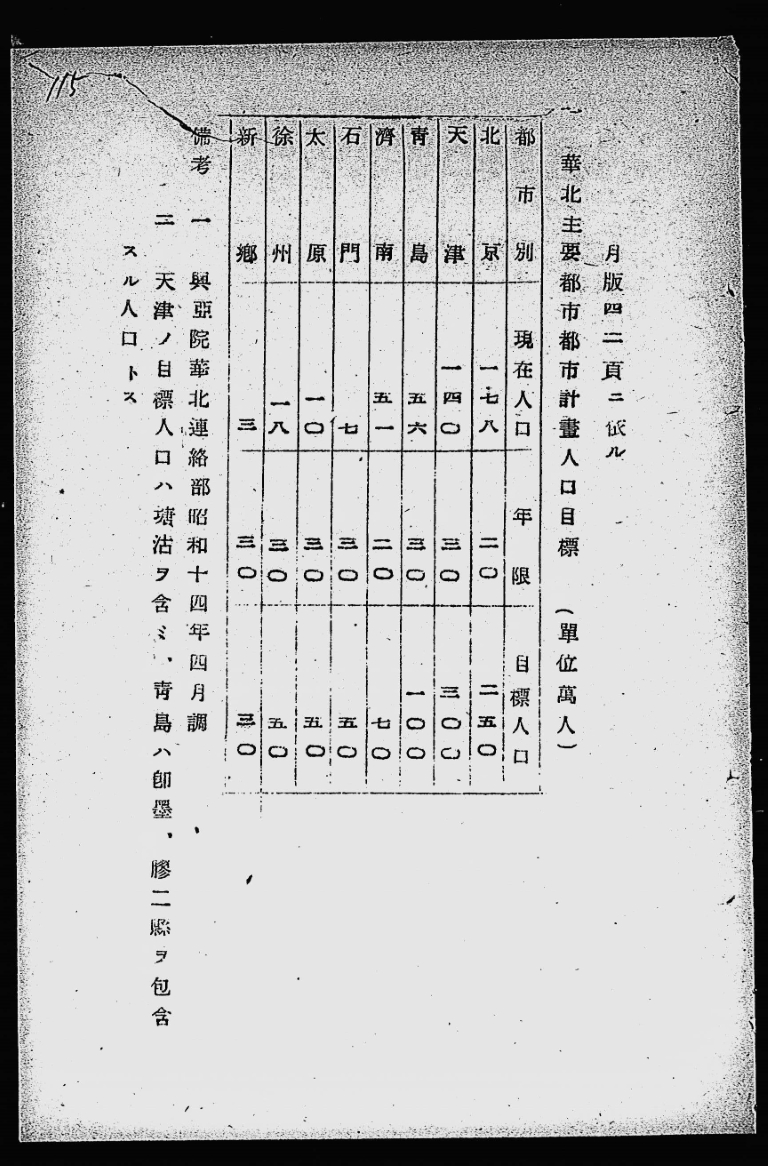 115
月版四二頁ニ依ル
華北主要都市都市計畫人口目標 (單位萬人)
都市別 現在人口 年限 目標人口
北京 一七八 二〇 二五〇
天津 一四〇 三〇 三〇〇
靑島 五六 三〇 一〇〇
濟南 五一 二〇 七〇
石門 七 三〇 五〇
太原 一〇 三〇 五〇
徐州 一八 三〇 五〇
新鄕 三 三〇 三〇
備考 一 興亞院華北連絡部昭和十四年四月調
二 天津ノ目標人口ハ塘沽ヲ含ミ、靑島ハ卽墨、膠二縣ヲ包含
スル人口トス